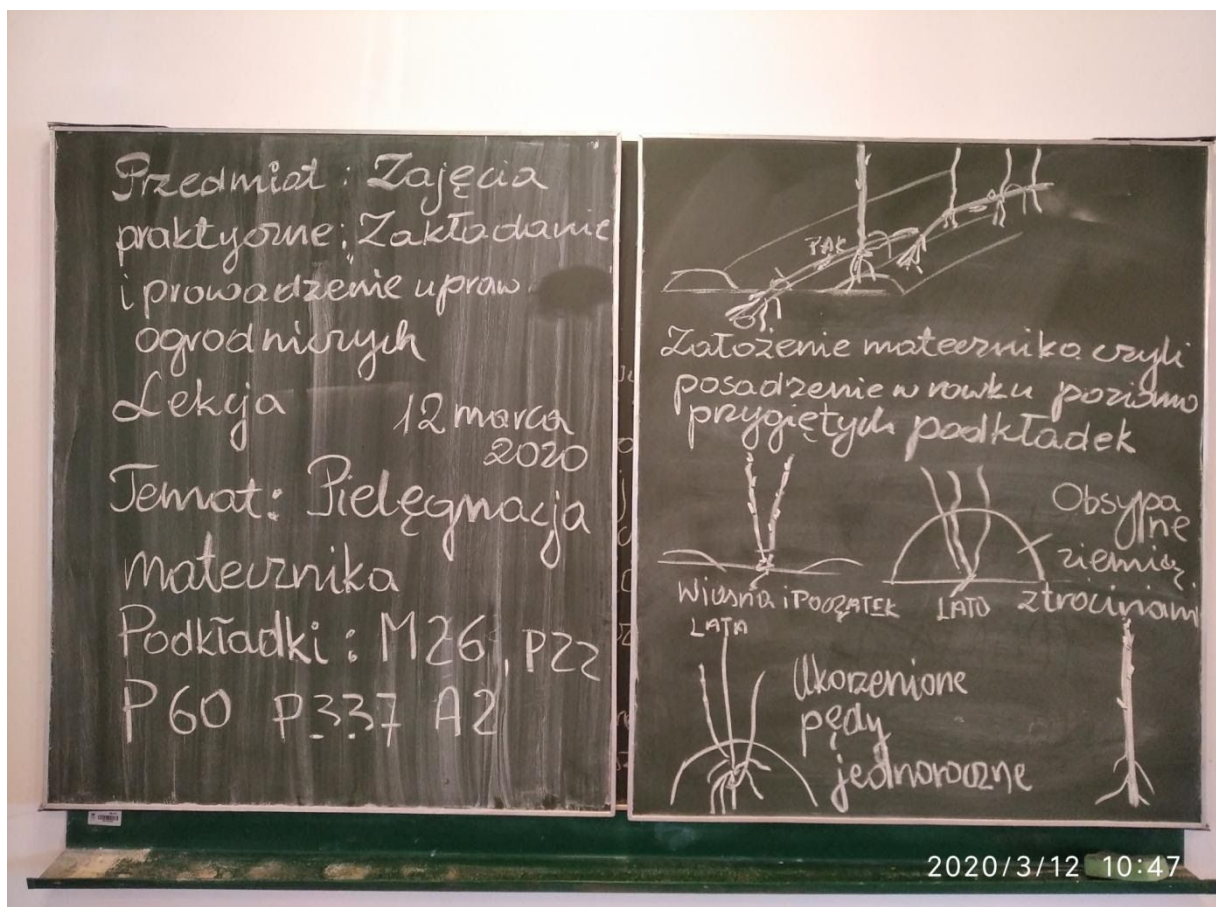 Przedmiot : Zajęcia
praktyczne; Zakładanie
i prowadzenie upraw
ogrodniczych
Lekcja 12 marca
2020
Temat: Pielęgnacja
matecznika
Podkładki : M26, P22
P60 P337 A2
PĄK
Założenie matecznika czyli
posadzenie w rowku poziomo
przygiętych podkładek
Obsypa
ne
ziemią
z trocinami
Wiosna i POCZĄTEK
LATA
LATO
Ukorzenione
pędy
jednoroczne
2020/3/12 10:47